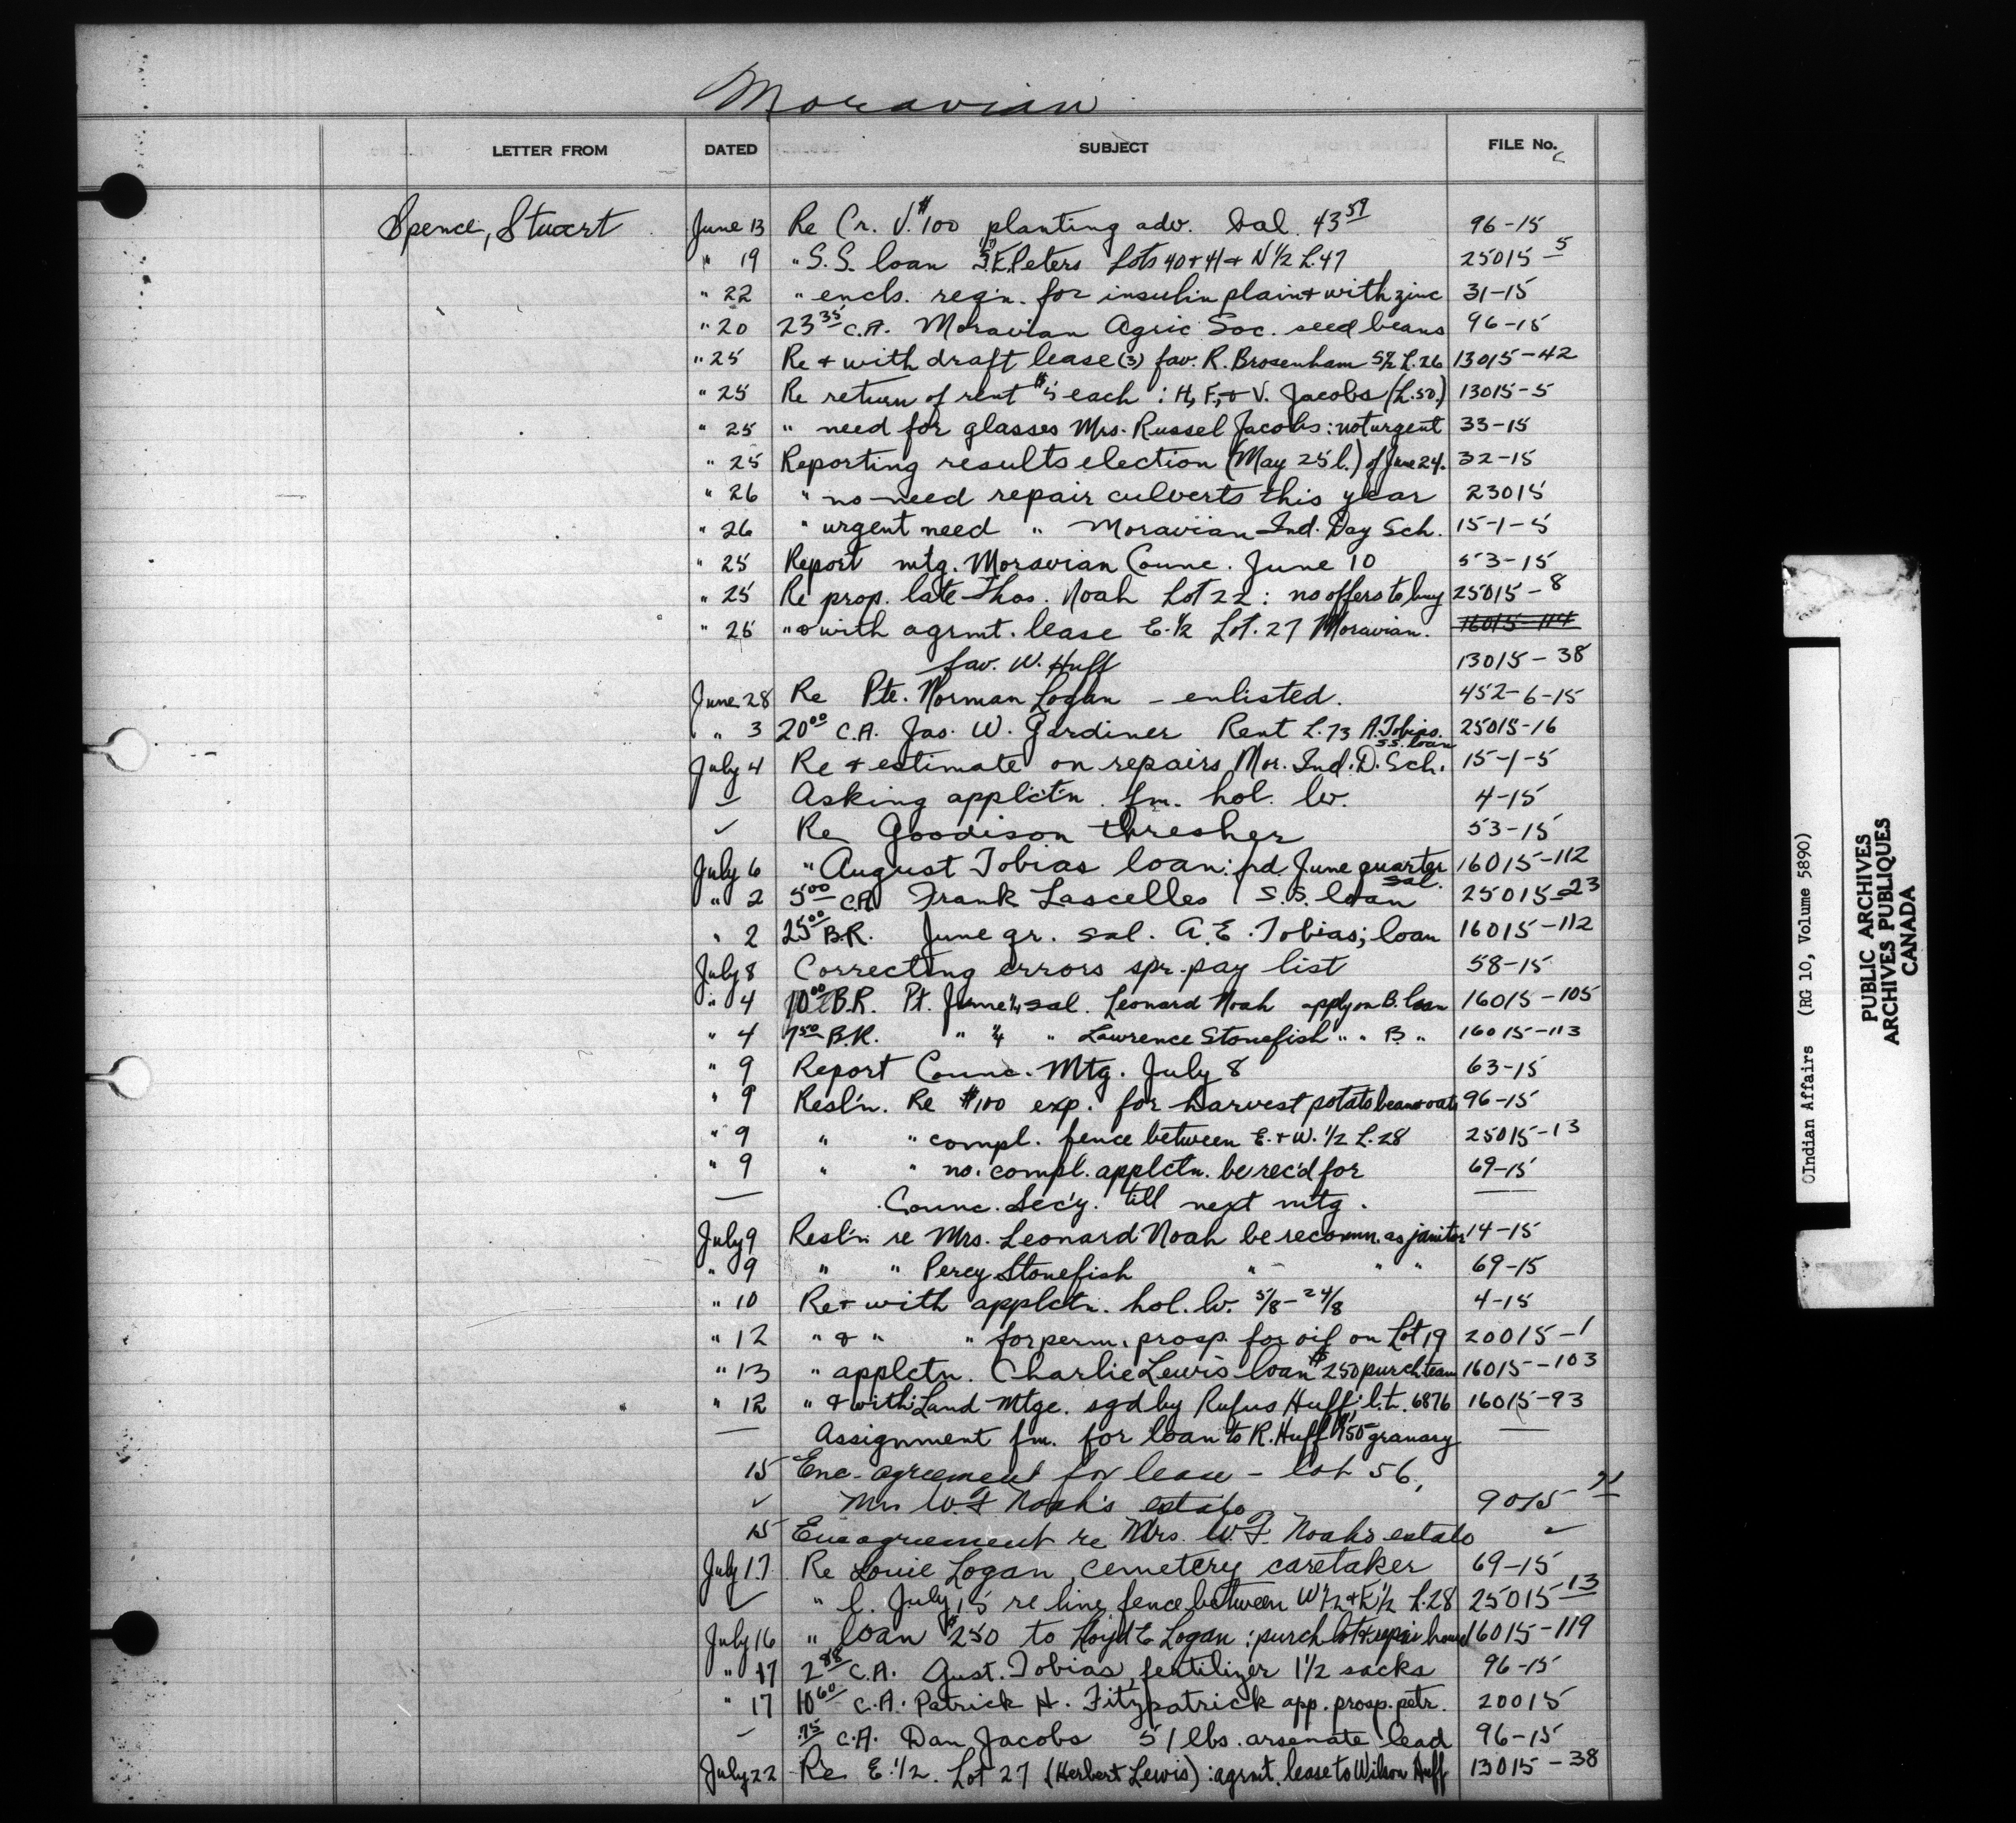 Moravian
LETTER FROM DATED SUBJECT FILE No.
Spence, Stuart June 13 Re Cr. V. $100 planting adv. bal. 43 59 96-15
" 19 " S.S. loan S.E. Peters Lots 40 + 41 + N 1/2 L.47 25015-5
" 22 " encls. reg'n. for insulin plain + with zinc 31-15
" 20 23 35 C.A. Moravian Agric Soc. seed beans 96-15
" 25 Re + with draft lease (3) fav. R. Brosenham S 1/2 L.26 13015-42
" 25 Re return of rent $5 each : H, F, + V. Jacobs (L.50.) 13015-5
" 25 " need for glasses Mrs. Russel Jacobs : not urgent 33-15
" 25 Reporting results election (May 25 l.) of June 24. 32-15
" 26 " no need repair culverts this year 23015
" 26 " urgent need " Moravian Ind. Day Sch. 15-1-5
" 25 Report mtg. Moravian Counc. June 10 53-15
" 25 Re prop. late Thos. Noah Lot 22 : no offers to buy 25015-8
" 25 " + with agrmt. lease E. 1/2 Lot. 27 Moravian. 16015-114
fav. W. Huff 13015-38
June 28 Re Pte. Norman Logan - enlisted. 452-6-15
" 3 20 00 C.A. Jas. W. Gardiner Rent L.73 A. Tobias. S.S. loan 25015-16
July 4 Re + estimate on repairs Mor. Ind. D. Sch. 15-1-5
✓ Asking applct'n. fm. hol. lv. 4-15
✓ Re Goodison thresher 53-15
July 6 " August Tobias loan : pd. June quarter sal. 16015-112
" 2 5 00 C.A. Frank Lascelles S.S. loan 25015-23
" 2 25 00 B.R. June qr. sal. A.E. Tobias; loan 16015-112
July 8 Correcting errors spr. pay list 58-15
" 4 10 00 B.R. Pt. June 1/4 sal. Leonard Noah apply on B. loan 16015-105
" 4 7 50 B.R. " 1/4 " Lawrence Stonefish " " B " 16015-113
" 9 Report Counc. Mtg. July 8 63-15
" 9 Resl'n. Re $100 exp. for harvest potato beans + oats 96-15
" 9 " " compl. fence between E. + W. 1/2 L.28 25015-13
" 9 " " no. compl. applctn. be rec'd for 69-15
— Counc. Sec'y. till next mtg. —
July 9 Resl'n re Mrs. Leonard Noah be recomm. as janitor 14-15
" 9 " " Percy Stonefish " " " " 69-15
" 10 Re + with applctn. hol. lv. 5/8 - 24/8 4-15
" 12 " + " " for perm. prosp. for oil on Lot 19 20015-1
" 13 " applctn. Charlie Lewis loan $250 purch team 16015-103
" 12 " + with Land Mtge. sgd by Rufus Huff; l.t. 6876 16015-93
— Assignment fm. for loan to R. Huff $150 granary —
15 Enc. agreement for lease - lot 56,
✓ Mrs W.F. Noah's estate 9015-21
15 Enc agreement re Mrs. W.F. Noah's estate ✓
July 17 Re Louie Logan, cemetery caretaker 69-15
✓ " l. July 15 re line fence between W 1/2 + E 1/2 L.28 25015-13
July 16 " loan $250 to Lloyd E Logan : purch lot + repair house 16015-119
" 17 2 88 C.A. Gust. Tobias, fertilizer 1 1/2 sacks 96-15
" 17 10 60 C.A. Patrick H. Fitzpatrick app. prosp. petr. 20015
— .75 C.A. Dan Jacobs 5 1 lbs. arsenate lead 96-15
July 22 Re E. 1/2. Lot 27 (Herbert Lewis) : agrmt. lease to Wilson Huff 13015-38
OIndian Affairs (RG 10, Volume 5890)
PUBLIC ARCHIVES
ARCHIVES PUBLIQUES
CANADA